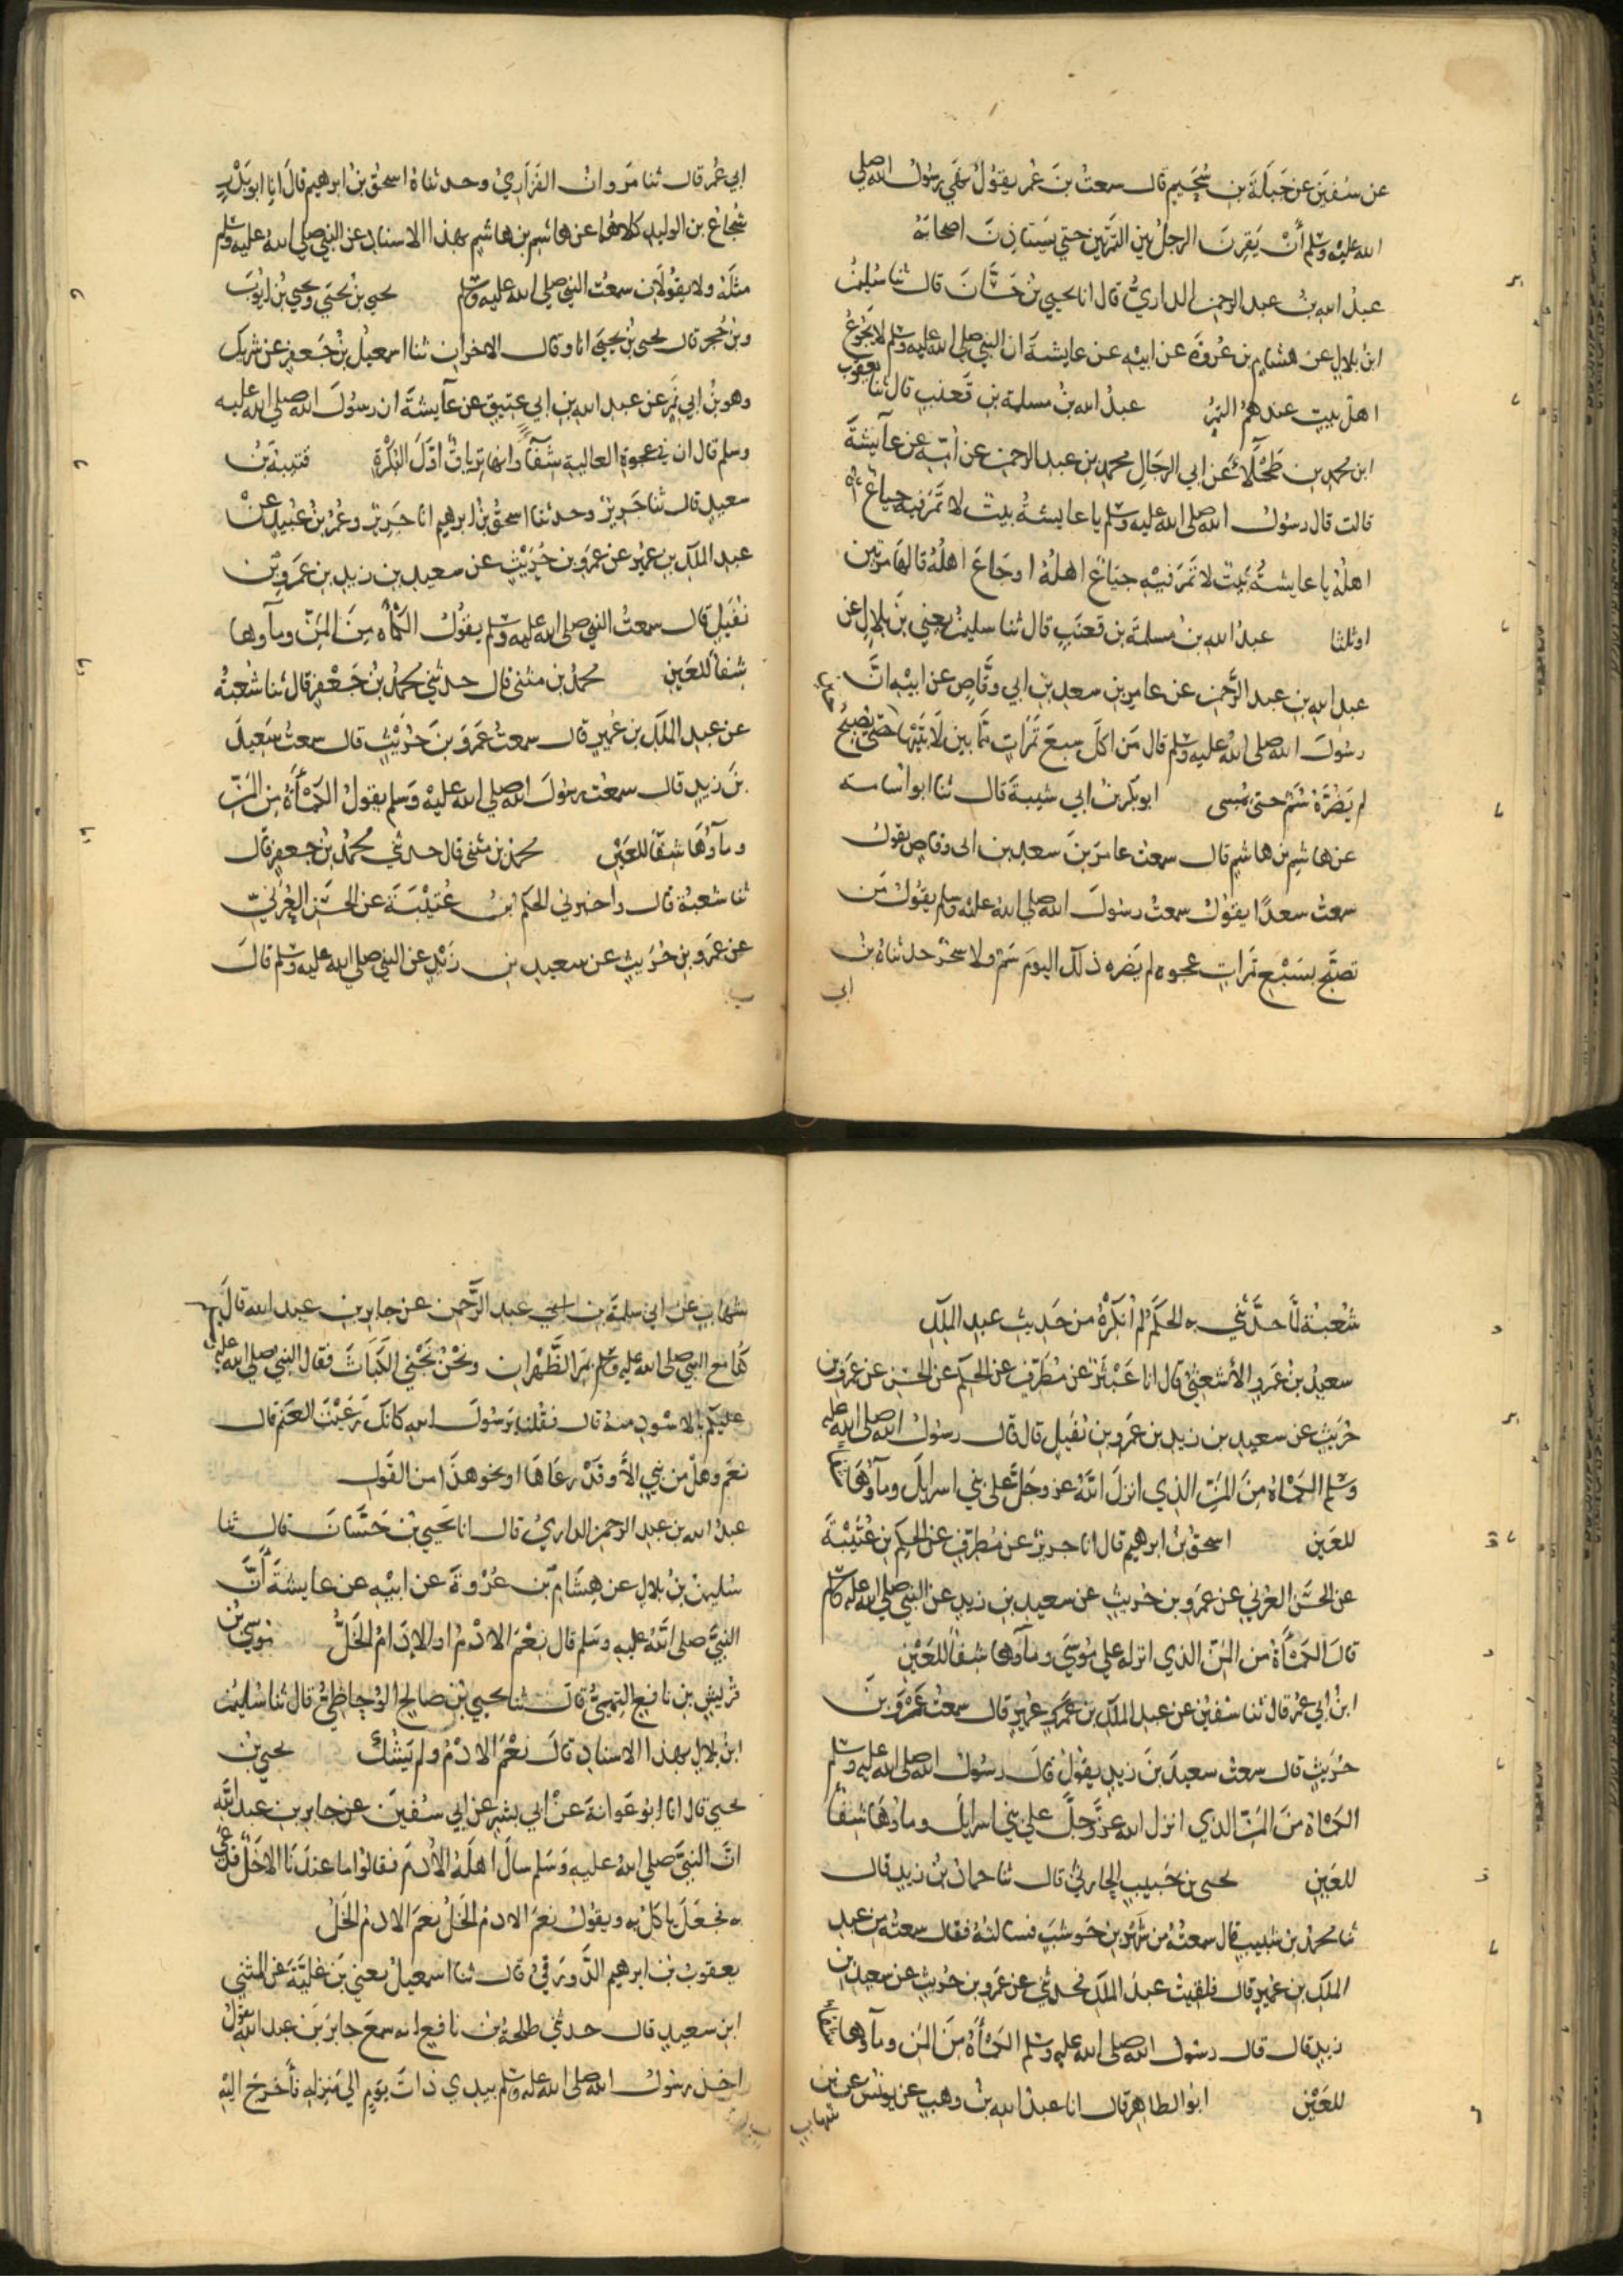 عن سُفيَن عن جَبَلَةَ بن سُحَيمٍ قال سمعتُ بنَ عُمر يقوُلُ نهَي رسُولُ الله صلي
الله عليه وسلم أنْ يَقرِنَ الرجلُ بين التمرتين حتي يَستاذِنَ اصحابَهُ
عبدُ اللهِ بنُ عبد الرحمن الدارميُّ قال انا يحيي بنُ حَسَّانَ قال ثنا سُليمنُ
ابنُ بلالٍ عن هشامِ بن عُروةَ عن ابيهِ عن عايشةَ ان النبي صلي الله عليه وسلم لا يَجُوعُ
اهلُ بيتٍ عندهمُ التمرُ عبدُ الله بنُ مسلمة بنِ قَعنبٍ قال ثنا يعقوبُ
ابن محمدِ بنِ طَحْلآءَ عن ابي الرجَالِ محمدِ بنِ عبد الرحمن عن أمّهِ عن عآيشَةَ
قالت قال رسُولُ الله صلى الله عليه وسلم يا عايشةُ بيتٌ لا تَمرَ فيه جياعٌ
اهلُهُ يا عايشةُ بَيتٌ لا تَمرَ فيْهِ جيَاعٌ اهلُهُ او جَاعَ اهلُهُ قالهَا مرتين
او ثلثا عبدُ الله بنُ مسلمةَ بن قعنَبٍ قال ثنا سليمنُ يعني بنَ بلالٍ عن
عبد اللهِ بنِ عبد الرَّحمن عن عامرِ بنِ سعدِ بنِ ابي وقَّاصٍ عن ابيْهِ انَّ
رسُولَ الله صلى اللهُ عليه وسلم قال مَن اكلَ سبعَ تمَرَاتٍ ممَّا بين لَابَتَيْهَا حتّى يُصْبِحُ
لم يَضُرَّهُ سُمٌّ حتى يُمسى ابو بكر بنُ ابي شيبةَ قال ثنا ابو اسَامة
عن هاشم بن هاشمٍ قال سمعتُ عامرَ بنَ سعدِ بن ابى وقاصٍ يقولُ
سمعتُ سعدًا يقوُلُ سمعتُ رسُولَ الله صلي اللهُ عليه وسلم يقوُلُ مَن
تصبّحَ بسَبْعِ تمَراتٍ عجوه لم يضَره ذلك اليومَ سُمٌّ ولا سِحْرٌ حدثناهُ بنُ
ابي
ابي عُمر قال ثنا مَروانُ الفزَاريُ وحدثناهُ اسحقُ بن ابرهيم قالَ انا ابو بَدْرٍ
شُجاعُ بن الوليدِ كلاهُمَا عن هَاشمِ بن هاشمٍ بهذا الاسنادِ عن النبي صلي اللهُ عليه وسلم
مثلَهُ ولا يقوُلانِ سمعتُ النبي صلي الله عليه وسلم يحيي بنُ يحيَي ويحيي بنُ ايوُبَ
وبنُ حُجرٍ قال يحيى بنُ يحيَى انا وقال الاخرانِ ثنا اسمعيلُ بنُ جَعفرٍ عن شريك
وهو بنُ ابي نَمرٍ عن عبد اللهِ بنِ ابي عتيقٍ عن عآيشةَ ان رسُولَ الله صلى الله عليه
وسلم قال ان في عجوةِ العاليةِ شِفآءً وانها تِرياقٌ اوَّلَ البُكرْةِ قتيبةُ بنُ
سعيدٍ قال ثنا جَريرٌ وحدثنا اسحقُ بنُ ابرهيم انا جَريرٌ وعُمر بنُ عُبَيدٍ عنْ
عبد الملك بن عميرٍ عن عمرو بن حُرَيْثٍ عن سعيدِ بنِ زيدِ بنِ عَمروِ بنِ
نُفَيلٍ قال سمعتُ النبي صلى الله عليه وسلم يقوُلُ الكَمْأه مِنَ المَنِّ ومآوها
شِفآ للعَينِ محمدُ بن مثنى قال حدثني محمدُ بنُ جَعْفرٍ قال ثنا شُعبةُ
عن عبدِ الملكِ بن عُميرٍ قال سمعتُ عَمروَ بنَ حُرَيْثٍ قال سمعتُ سَعيدَ
بنَ زيدٍ قال سمعتُ رسُولَ اللهِ صلي الله عليْه وَسَلم يقولُ الكمْأَةُ منَ المَنِّ
ومآوُهَا شفآ للعَيْنِ محمدُ بن مثنى قال حدثني محُمدُ بنُ جعفرٍ قال
ثنا شعبةُ قال واخبرني الحكمُ ابنُ عُتيْبَةَ عن الحَسَنِ العُرَنيّ
عن عَمروِ بنِ حُرَيثٍ عن سعيدِ بنِ زَيْدٍ عن النبي صلي الله عليه وسلم قالَ
شُعْبةُ لمَّا حدَّثني به الحكمُ لم أُنكِرْهُ من حَديثِ عبدِ الملكِ
سعيدُ بنُ عَمرٍو الأشعثيُّ قال انا عَبْثَرٌ عن مُطَرِّفٍ عن الحكم عن الحسَنِ عن عَمرو بن
حُرَيثٍ عن سعيدِ بنِ زيدِ بن عَمروِ بن نُفَيلٍ قال قال رسُولُ الله صلى الله عليه
وسلم الكَمْأةُ مِنَ المَنِّ الذي انزلَ اللهُ عز وجَلَّ على بني اسرايلَ ومآوُهَا شفآ
للعَينِ اسحقُ بنُ ابرهيم قال انا جريرٌ عن مُطرِّفٍ عن الحكم بن عُتَيْبَةَ
عن الحسَن العُرَني عن عمرو بن حُريثٍ عن سعيدِ بنِ زيدٍ عن النبي صلي الله عليه وسلم
قالَ الكَمْأَةُ من المَنِّ الذي انزلَ الله علي مُوسَي ومآوها شِفآ للعَيْنِ
ابنُ ابي عُمر قال ثنا سُفينُ عن عبدِ الملكِ بن عُمَيرٍ قال سمعتُ عَمْروَ بنَ
حُرَيثٍ قال سمعتُ سعيدَ بنَ زيدٍ يقوُلُ قال رسُولُ الله صلى الله عليه وسلم
الكَمْاةُ منَ المَنِّ الذي انزل الله عزَّ وجلَّ علي بني اسرايلَ وماوُهَا شِفآ
للعَينِ يحيى بن حَبيبٍ الحارِثيُّ قال ثنا حمادُ بنُ زيدٍ قال
ثنا محمدُ بن شبيبٍ قال سمعتُهُ من شَهْرِ بنِ حَوشَبَ فسالتُهُ فقال سمعتُهُ من عبدِ
الملكِ بن عُميرٍ قال فلقيتُ عبدَ الملكِ فحدثني عن عَمروِ بنِ حُرَيثٍ عن سعيدِ بن
زيدٍ قال قال رسُولُ الله صلى الله عليه وسلم الكَمْأَةُ مِنَ المَنِ ومآوها شفآ
للعَيْنِ ابوُ الطاهِرِ قال انا عبدُ اللهِ بنُ وهبٍ عن يونُسَ عن بن
شهاب
شهابٍ عن ابي سلمةَ بن عبد الرَّحمن عن جابرِ بنِ عبد الله قال
كُنا مع النبي صلى الله عليه وسلم بمَرِّ الظَّهْرَانِ ونحْنُ نَجْني الكَبَاثَ فقال النبي صلي الله عليه
عليكم بالاسْودِ منهُ قال فقُلنا يرسُولَ اللهِ كانكَ رَعَيْتَ الغنَم قال
نعَم وهلْ من نبيٍ الاَّ وقَدْ رعَاهَا او نحو هذَا من القَول
عبدُ الله بن عبدِ الرحمن الدارميُّ قال انا يَحيي بنُ حَسَّانَ قال ثنا
سُليمنُ بنُ بلالٍ عن هِشَامِ بنِ عُرْوةَ عن ابيْهِ عن عايشةَ أنَّ
النبيَّ صلى اللهُ عليهِ وسَلم قال نِعْمَ الادْمُ او الإدَامُ الخَلُّ موُسَي بنُ
قُريشِ بنِ نافعٍ التميميُّ قال ثنا يحيي بنُ صالحٍ الوُحَاظيُّ قال ثنا سُليمنُ
ابنُ بلالٍ بهذا الاسنادِ قالَ نعْمَ الادْمُ ولم يَشُكَّ يحيي بنُ
يحيي قال انا ابُو عَوانةَ عَنْ ابي بشرٍ عن ابي سُفينَ عن جابرِ بنِ عبد اللهِ
انَّ النبيَّ صلي اللهُ عليهِ وَسَلم سالَ اهلَهُ الأُدمَ فقالوُا ما عندَنَا الاخَلٌّ فدعَى
به فجعَلَ ياكلُ به ويقوُلُ نِعمَ الادمُ الخَلُّ نِعمَ الادمُ الخَلُّ
يعقوبُ بنُ ابرهيم الدَّورَقيُّ قال ثنا اسمعيلُ يعني بنَ عُليَّةَ عن المثني
ابنِ سعيدٍ قال حدثني طلحةُ بنُ نافعٍ انه سمعَ جابرَ بنَ عبد الله يقوُلُ
اخذ رسُولُ الله صلى الله عليه وسلم بيدي ذاتَ يومٍ الي مَنزلِهِ فأَخرجَ اليْهِ